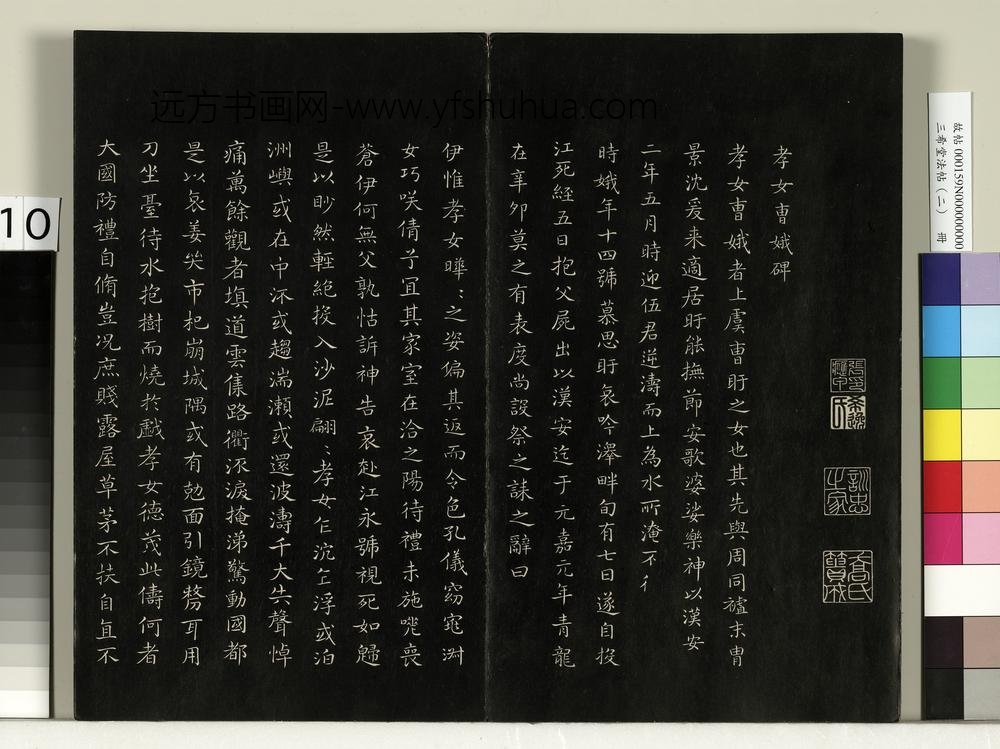 远方书画网-www.yfshuhua.com
孝女曺娥碑
孝女曺娥者上虞曺盱之女也其先與周同禇末胄
景沈爰来適居盱能撫節安歌婆娑樂神以漢安
二年五月時迎伍君逆濤而上為水所淹不
時娥年十四號慕思盱哀吟澤畔旬有七日遂自投
江死經五日抱父屍出以漢安迄于元嘉元年青龍
在辛卯莫之有表度尚設祭之誄之辭曰
伊惟孝女曄〻之姿偏其返而令色孔儀窈窕淑
女巧咲倩兮冝其家室在洽之陽待禮未施嗟喪
蒼伊何無父孰怙訴神告哀赴江永號視死如歸
是以眇然輕絶投入沙泥翩〻孝女乍沉乍浮或泊
洲嶼或在中沠或趨湍瀬或還波濤千夫失聲悼
痛萬餘觀者塡道雲集路衢沠淚掩涕驚動國都
是以哀姜哭市杞崩城隅或有尅面引鏡剺耳用
刀坐臺待水抱樹而燒於戱孝女德茂此儔何者
大國防禮自脩豈况庶賤露屋草茅不扶自直不
故帖 000159N000000000
三希堂法帖（二） 冊
10